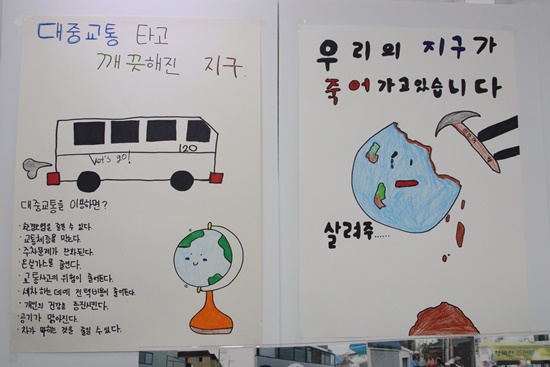 대중교통 타고
깨끗해진 지구.
120
Let's go!
대중교통을 이용하면?
· 환경오염을 줄일 수 있다.
· 교통체증을 막는다.
· 주차문제가 완화된다.
· 온실가스를 줄인다.
· 교통사고의 위험이 줄어든다.
· 세차하는 데에 전력비용이 줄어든다.
· 개인의 건강을 증진시킨다.
· 공기가 맑아진다.
· 차가 막히는 것을 줄일 수 있다.
우리의 지구가
죽어가고있습니다
살려주......